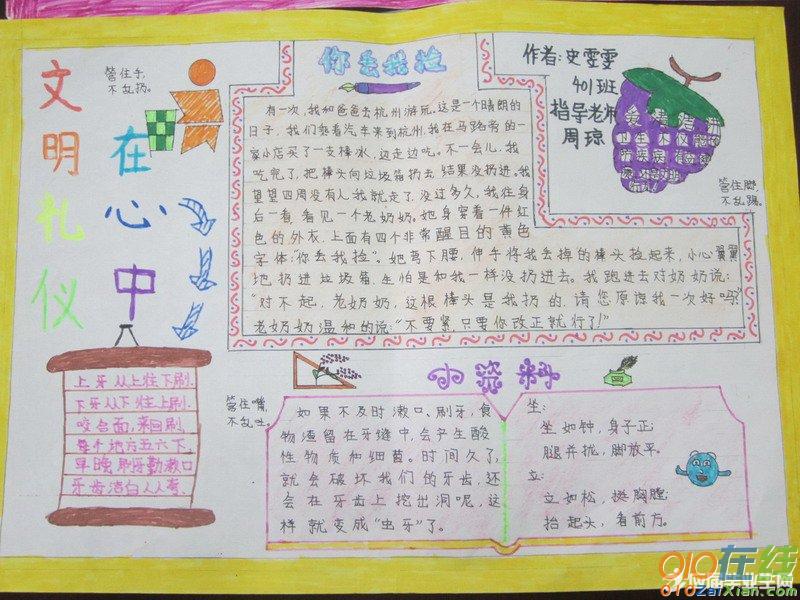 文明礼仪
在心中
管住手,
不乱扔。
你丢我捡
作者:史雯雯
401班
指导老师
周琼
有一次,我和爸爸去杭州游玩。这是一个晴朗的
日子,我们乘着汽车来到杭州。我在马路旁的一
家小店买了一支棒冰,边走边吃。不一会儿,我
吃完了,把棒头向垃圾箱扔去,结果没扔进。我
望望四周没有人,我就走了。没过多久,我往身
后一看,看见一个老奶奶。她身穿着一件红
色的外衣,上面有四个非常醒目的黄色
字体:“你丢我捡”。她弯下腰,伸手将我丢掉的棒头捡起来,小心翼翼
地扔进垃圾箱,生怕是和我一样没扔进去。我跑进去对奶奶说:
“对不起,老奶奶,这根棒头是我扔的,请您原谅我一次好吗?”
老奶奶温和的说:“不要紧,只要你改正就行了!”
管住脚,
不乱踢。
上牙从上往下刷.
下牙从下往上刷.
咬合面,来回刷.
每个地方五六下.
早晚刷牙勤漱口
牙齿洁白人人夸.
小资料
管住嘴,
不乱吐。
如果不及时漱口、刷牙,食
物渣留在牙缝中,会产生酸
性物质和细菌。时间久了,
就会破坏我们的牙齿,还
会在牙齿上挖出洞呢,这
样就变成“虫牙”了。
坐:
坐如钟,身子正;
腿并拢,脚放平。
立:
立如松,挺胸膛;
抬起头,看前方。
010在线
010zaixian.com